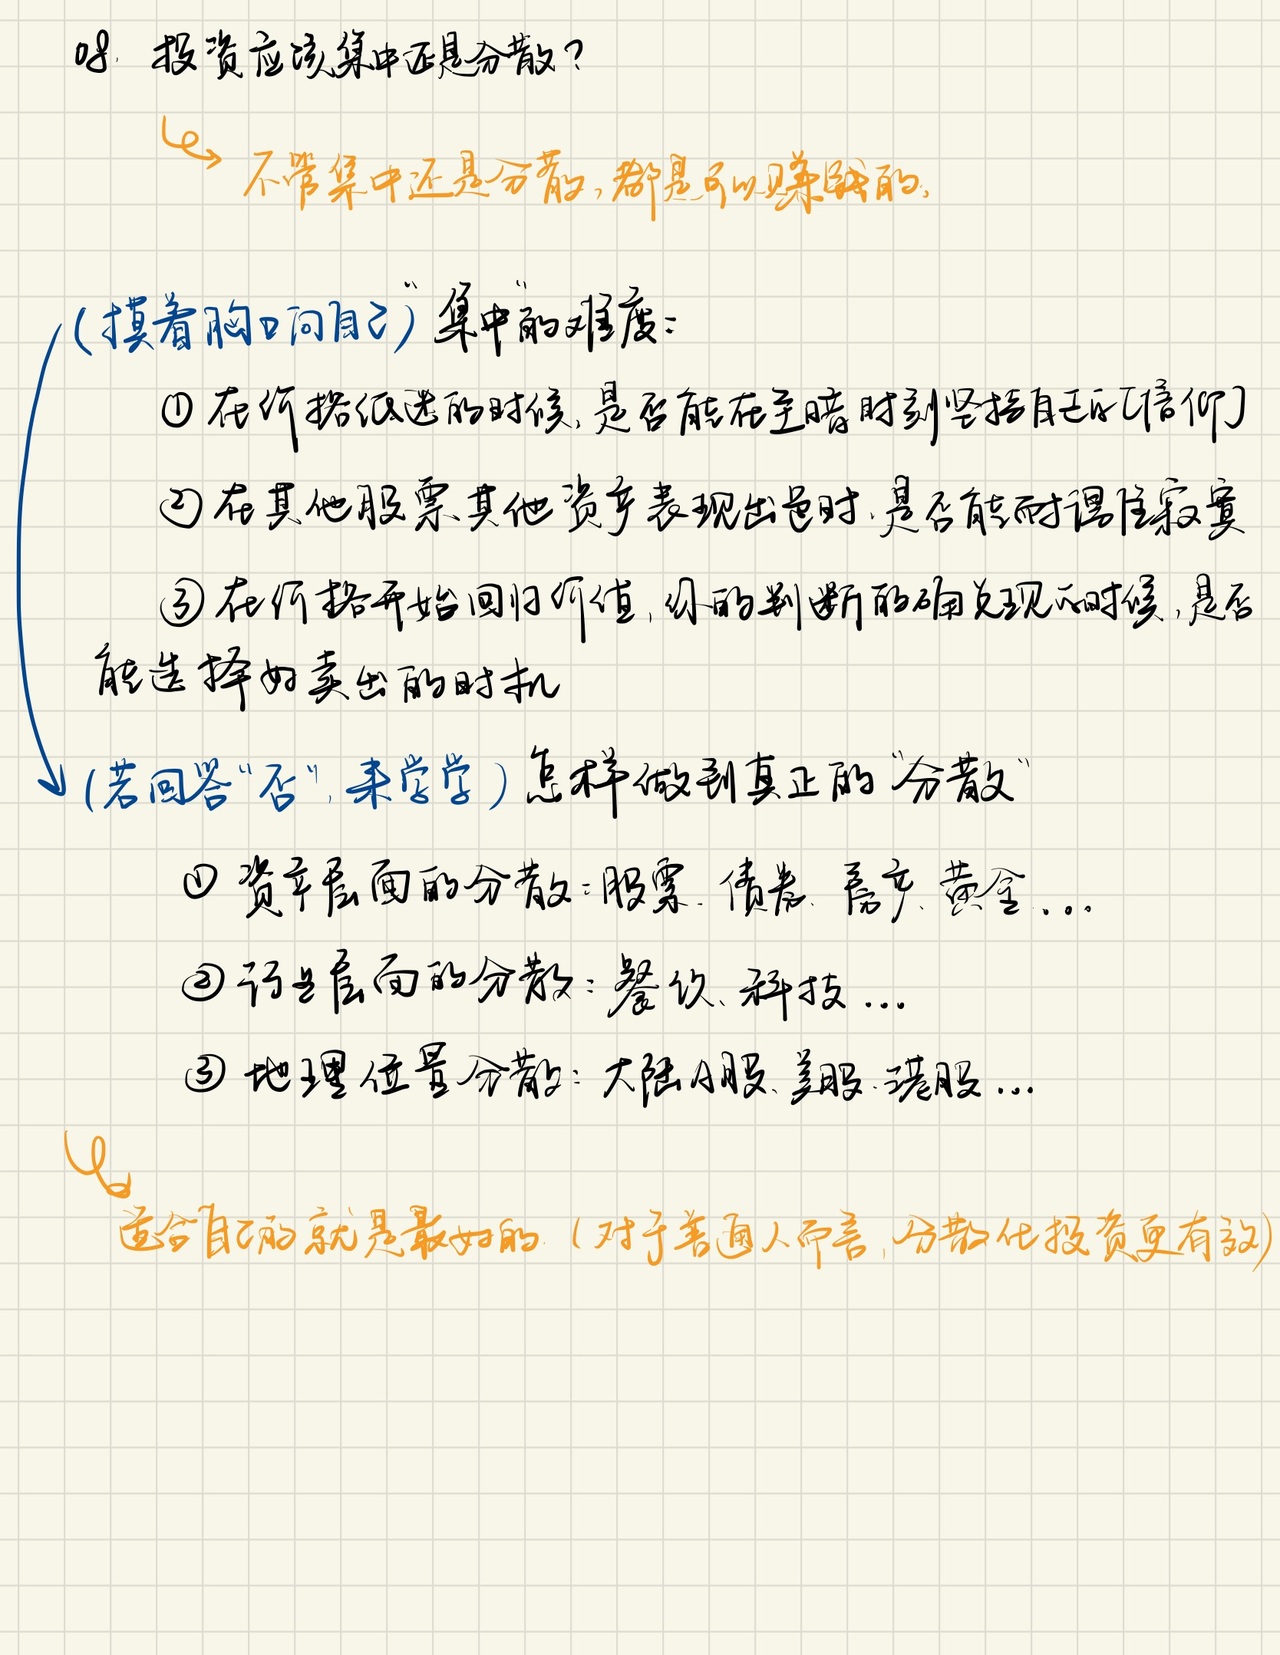 08. 投资应该集中还是分散？
不管集中还是分散，都是可以赚钱的，
（摸着胸口问自己）“集中”的难度：
① 在价格低迷的时候，是否能在至暗时刻坚持自己的「信仰」
② 在其他股票、其他资产表现出色时，是否能耐得住寂寞
③ 在价格开始回归价值，你的判断的确兑现的时候，是否
能选择好卖出的时机
（若回答“否”，来学学）怎样做到真正的“分散”
① 资产层面的分散：股票、债券、房产、黄金...
② 行业层面的分散：餐饮、科技...
③ 地理位置分散：大陆A股、美股、港股...
适合自己的就是最好的（对于普通人而言，分散化投资更有效）